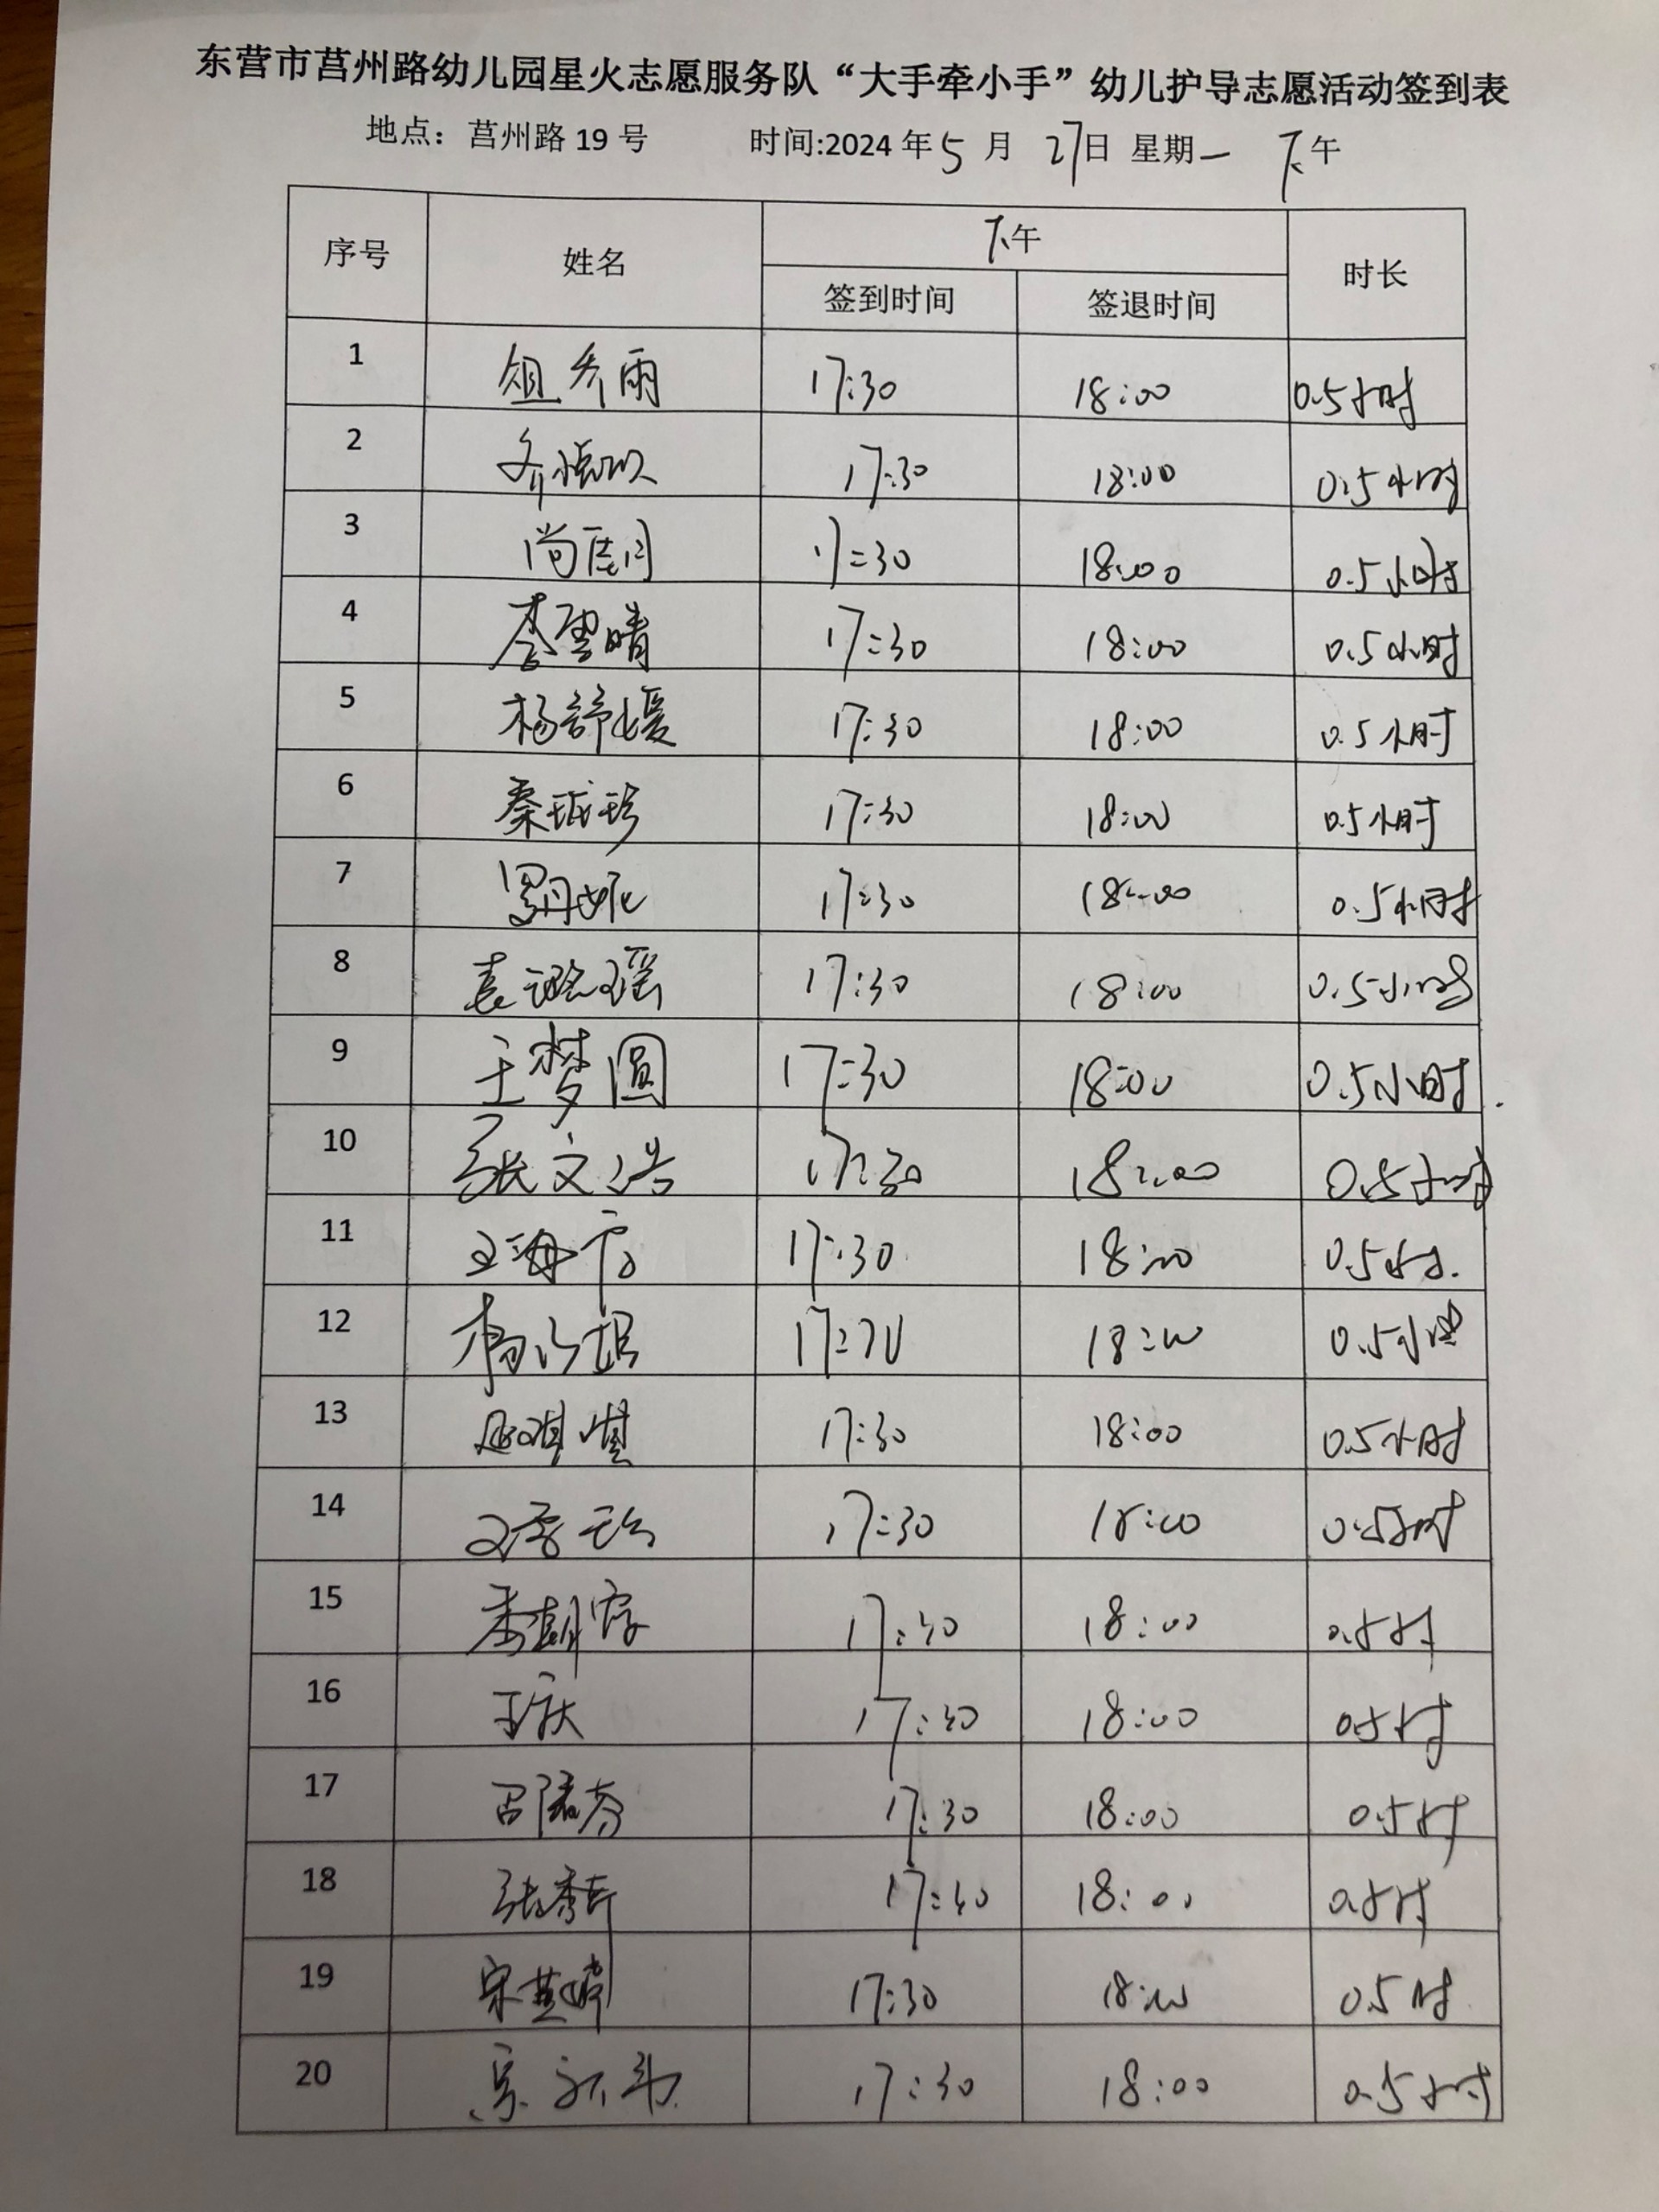 东营市莒州路幼儿园星火志愿服务队“大手牵小手”幼儿护导志愿活动签到表
地点：莒州路19号 时间:2024年5月27日 星期一 下午
序号 姓名 下午 时长
签到时间 签退时间
1 17:30 18:00 0.5小时
2 17:30 18:00 0.5小时
3 17:30 18:00 0.5小时
4 李雪晴 17:30 18:00 0.5小时
5 杨舒媛 17:30 18:00 0.5小时
6 秦珑珍 17:30 18:00 0.5小时
7 罗丹妮 17:30 18:00 0.5小时
8 袁璐瑶 17:30 18:00 0.5小时
9 王梦圆 17:30 18:00 0.5小时
10 张文浩 17:30 18:00 0.5小时
11 17:30 18:00 0.5小时
12 17:30 18:00 0.5小时
13 17:30 18:00 0.5小时
14 17:30 18:00 0.5小时
15 17:30 18:00 0.5小时
16 于庆 17:30 18:00 0.5小时
17 17:30 18:00 0.5小时
18 17:30 18:00 0.5小时
19 宋燕婷 17:30 18:00 0.5时
20 17:30 18:00 0.5小时